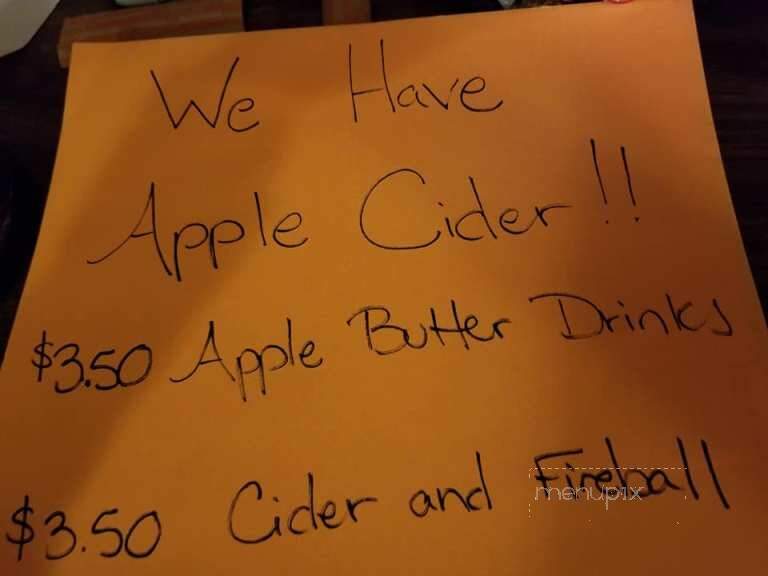 We Have
Apple Cider!!
$3.50 Apple Butter Drinks
$3.50 Cider and Fireball
menupix